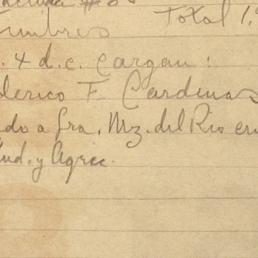 Total 1.
Timbres
. y d.c. cargan:
derico F. Cardenas
do a Sra. Mz. del Rio en
ud. y Agric.